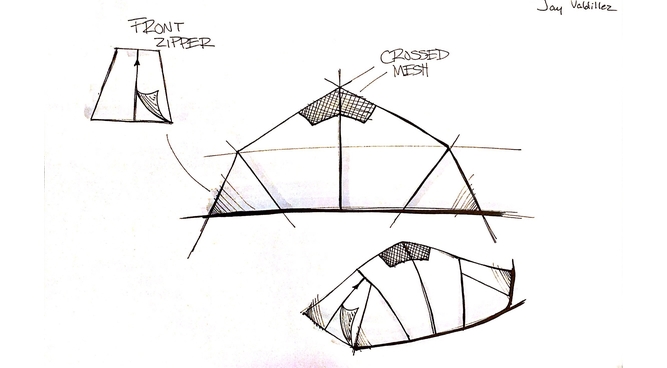 Jay Valdillez
FRONT
ZIPPER
CROSSED
MESH